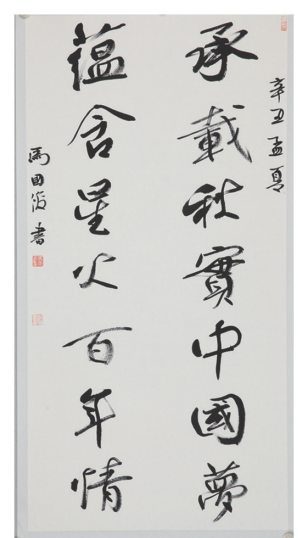 辛丑孟夏
承載秋實中國夢
藴含星火百年情
馬国俊書